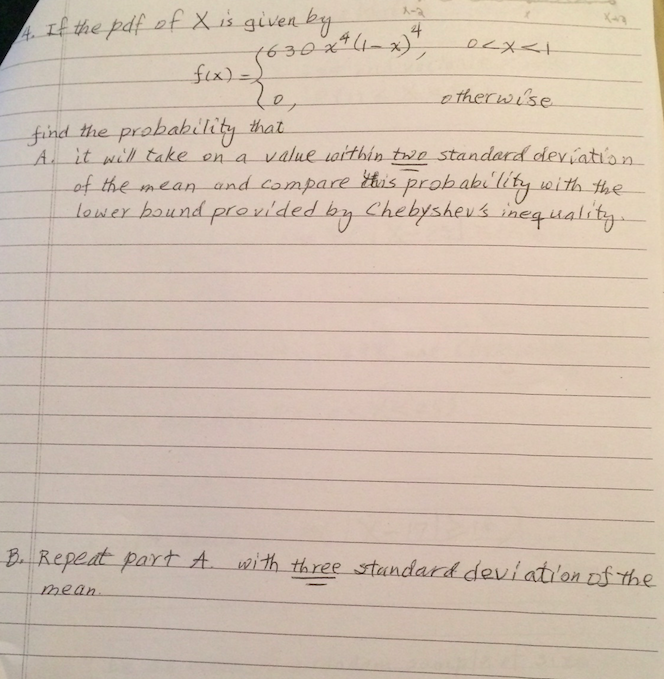 4. If the pdf of X is given by
f(x) = { 630 x⁴ (1-x)⁴, 0<x<1
0, otherwise
find the probability that
A. it will take on a value within two standard deviation
of the mean and compare this probability with the
lower bound provided by Chebyshev's inequality.
B. Repeat part A. with three standard deviation of the
mean.